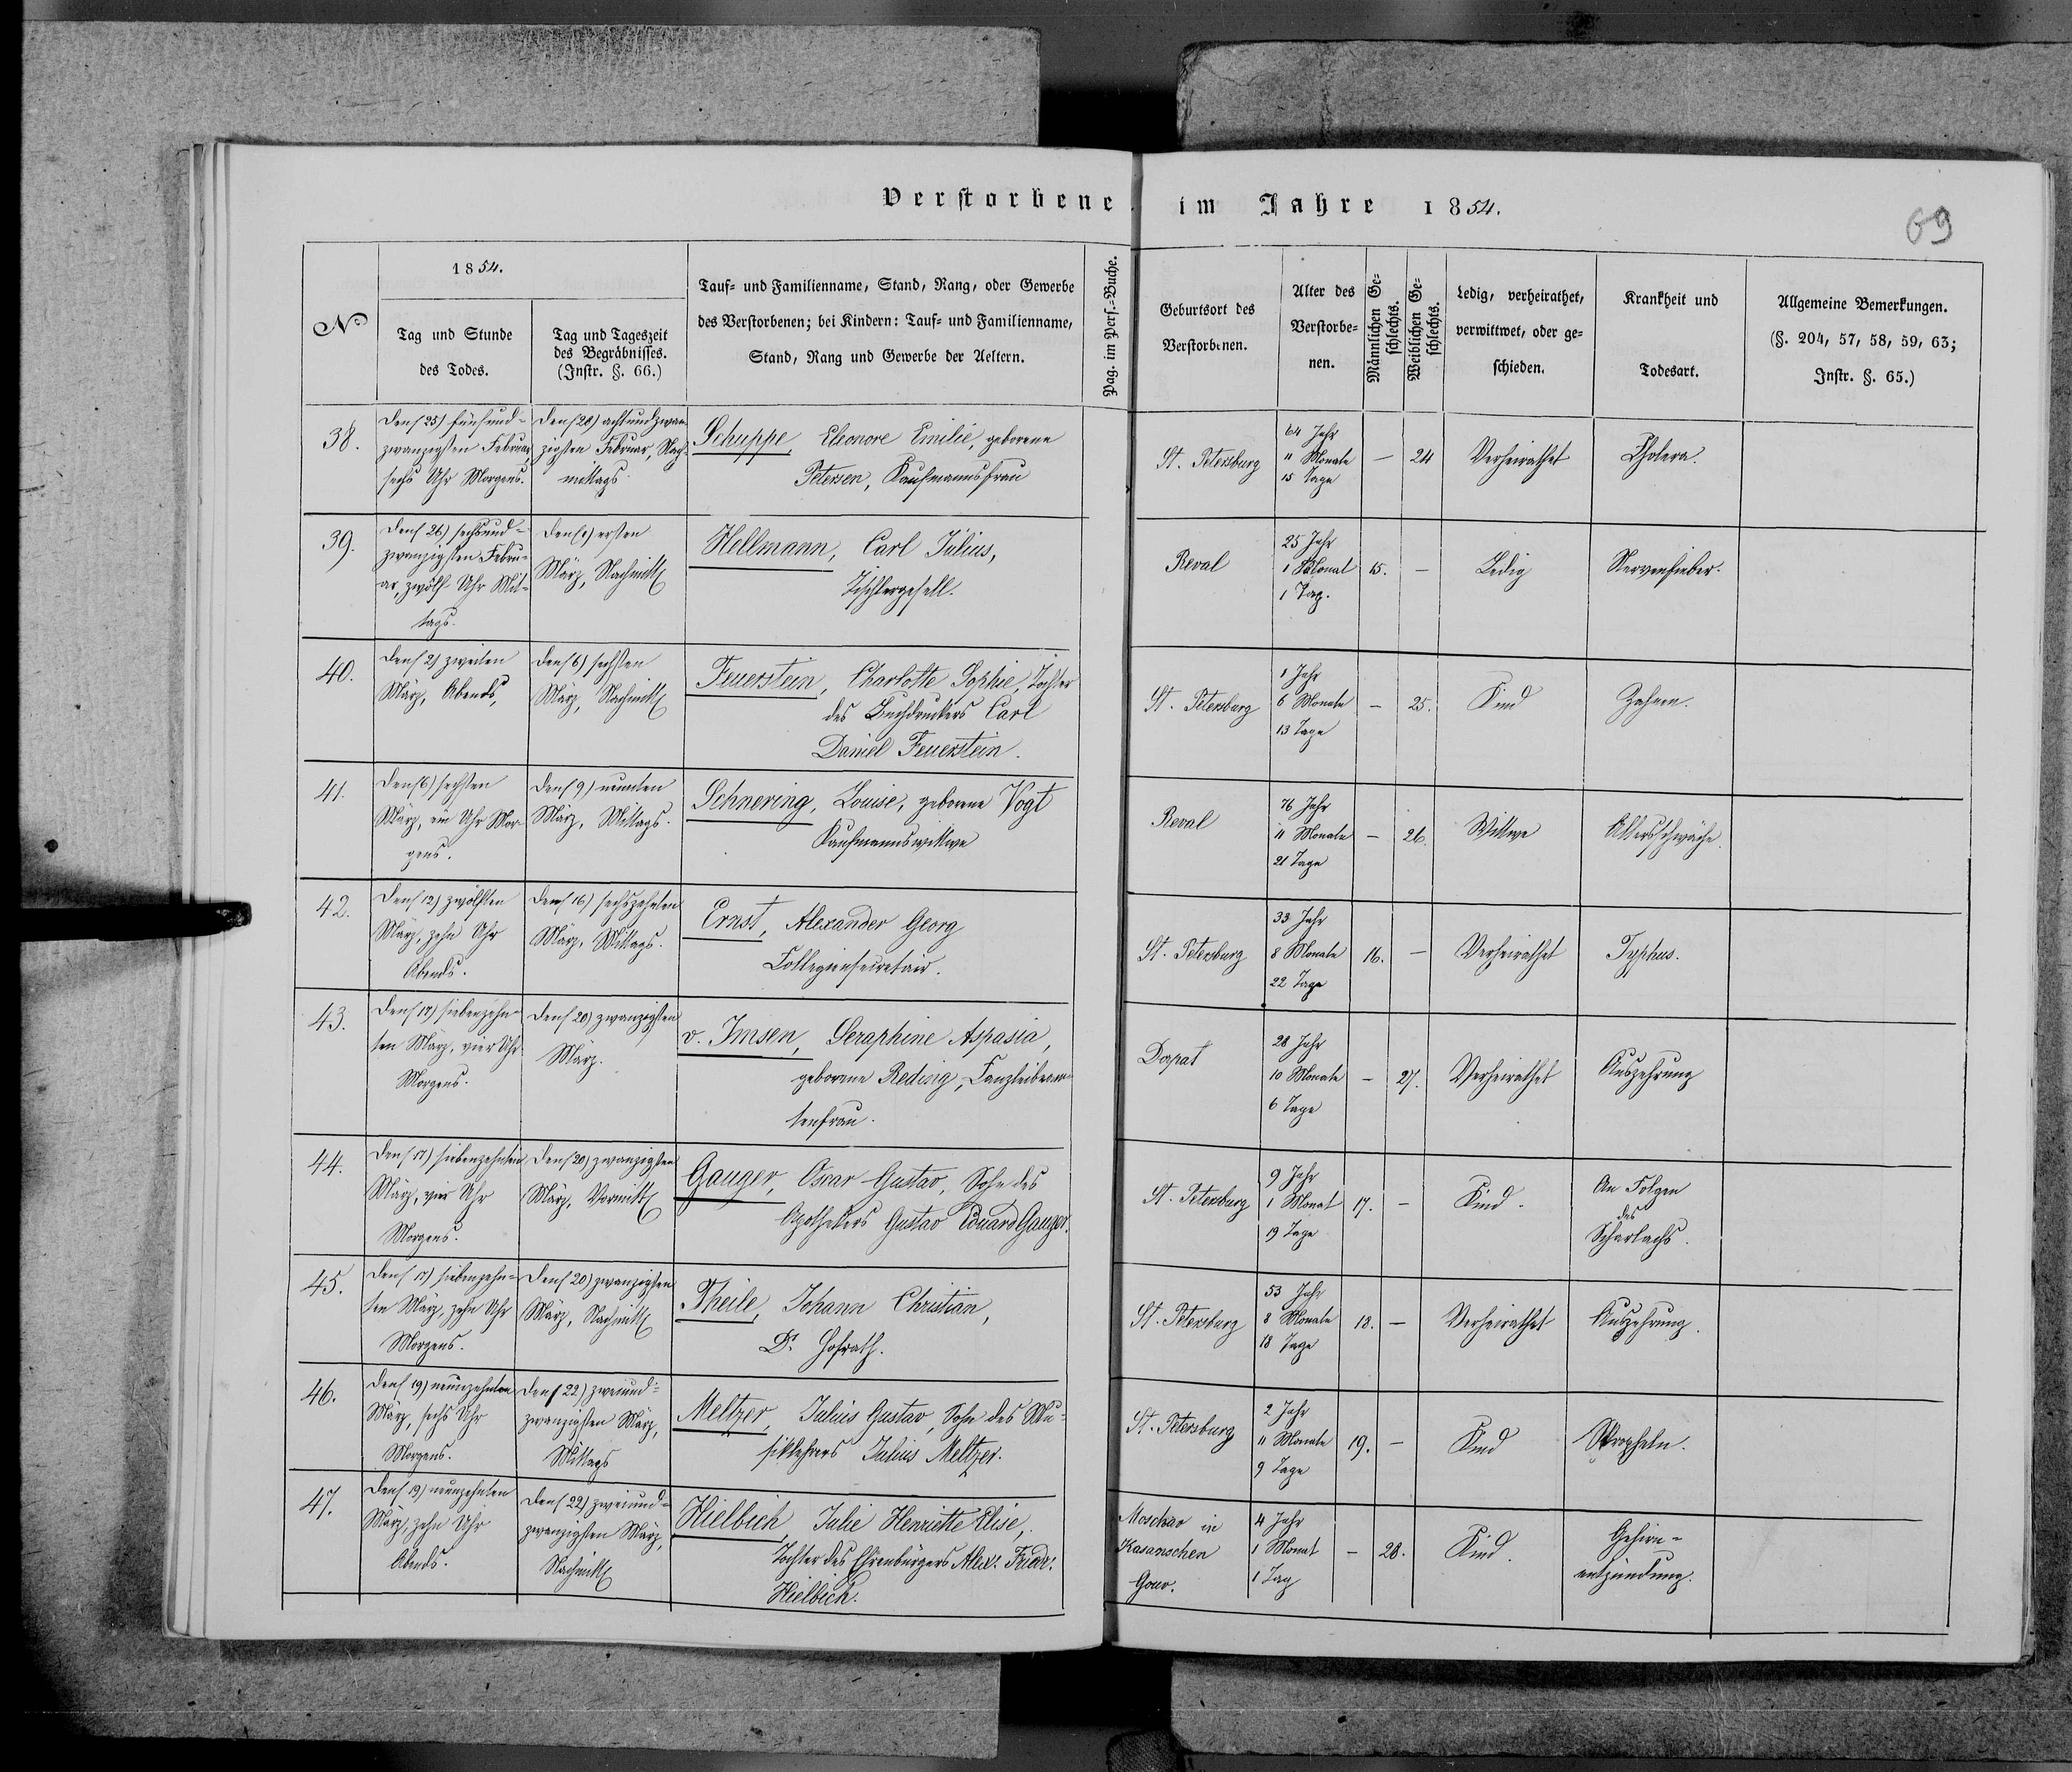 Verstorbene im Jahre 1854.
69
No
1854.
Tag und Stunde
des Todes.
Tag und Tageszeit
des Begräbnisses.
(Instr. §. 66.)
Tauf- und Familienname, Stand, Rang, oder Gewerbe
des Verstorbenen; bei Kindern: Tauf- und Familienname,
Stand, Rang und Gewerbe der Aeltern.
Pag. im Pers.-Buche.
Geburtsort des
Verstorbenen.
Alter des
Verstorbe-
nen.
Männlichen Ge-
schlechts.
Weiblichen Ge-
schlechts.
Ledig, verheirathet,
verwittwet, oder ge-
schieden.
Krankheit und
Todesart.
Allgemeine Bemerkungen.
(§. 204, 57, 58, 59, 63;
Instr. §. 65.)
38.
Den (25) fünfund-
zwanzigsten Februar,
sechs Uhr Morgens.
Den (28) achtundzwan-
zigsten Februar, Nach-
mittags.
Schuppe, Eleonore Emilie, geborene
Petersen, Kaufmannsfrau
St. Petersburg
64 Jahr
11 Monate
15 Tage
—
24
Verheirathet
Cholera.
39.
Den (26) sechsund-
zwanzigsten Febru-
ar, zwölf Uhr Mit-
tags.
Den (1) ersten
März, Nachmitt
Hellmann, Carl Julius,
Tischlergesell.
Reval
25 Jahr
1 Monat
1 Tag.
15.
—
Ledig
Nervenfieber.
40.
Den (2) zweiten
März, Abends,
Den (6) sechsten
März, Nachmitt
Feuerstein, Charlotte Sophie, Tochter
des Buchdruckers Carl
Daniel Feuerstein.
St. Petersburg
1 Jahr
6 Monate
13 Tage
—
25.
Kind
Zahnen.
41.
Den (6) sechsten
März, ein Uhr Mor-
gens.
Den (9) neunten
März, Mittags.
Schnering, Louise, geborene Vogt
Kaufmannswittwe
Reval
76 Jahr
11 Monate
21 Tage
—
26.
Wittwe
Altersschwäche.
42.
Den (12) zwölften
März, zehn Uhr
Abends.
Den (16) sechszehnten
März, Mittags.
Ernst, Alexander Georg
Collegiensecretair.
St. Petersburg
33 Jahr
8 Monate
22 Tage
16.
—
Verheirathet
Typhus.
43.
Den (17) siebenzehn-
ten März, vier Uhr
Morgens.
Den (20) zwanzigsten
März.
v. Imsen, Seraphine Aspasia,
geborene Reding, Canzleibeam-
tenfrau.
Dorpat
28 Jahr
10 Monate
6 Tage
—
27.
Verheirathet
Auszehrung
44.
Den (17) siebenzehnten
März, vier Uhr
Morgens.
Den (20) zwanzigsten
März, Vormitt
Gauger, Oscar Gustav, Sohn des
Apothekers Gustav Eduard Gauger.
St. Petersburg
9 Jahr
1 Monat
19 Tage
17.
—
Kind.
An Folgen
des
Scharlachs.
45.
Den (17) siebenzehn-
ten März, zehn Uhr
Morgens.
Den (20) zwanzigsten
März, Nachmitt
Theile, Johann Christian,
Dr. Hofrath.
St. Petersburg
53 Jahr
8 Monate
18 Tage
18.
—
Verheirathet
Auszehrung.
46.
Den (19) neunzehnten
März, sechs Uhr
Morgens.
Den (22) zweiund-
zwanzigsten März,
Mittags
Meltzer, Julius Gustav, Sohn des Mu-
siklehrers Julius Meltzer.
St. Petersburg
2 Jahr
11 Monate
9 Tage
19.
—
Kind
Skropheln.
47.
Den (19) neunzehnten
März, zehn Uhr
Abends.
Den (22) zweiund-
zwanzigsten März,
Nachmitt
Hielbich, Julie Henriette Elise,
Tochter des Ehrenbürgers Alex. Friedr.
Hielbich.
Moschao in
Kasanschen
Gouv.
4 Jahr
1 Monat
1 Tag
—
28.
Kind.
Gehirn-
entzündung.